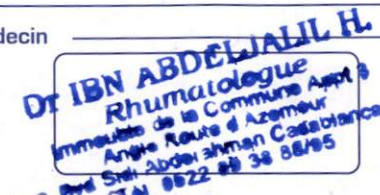 decin
Dr IBN ABDELJALIL H.
Rhumatologue
Immeuble de la Commune Appt 3
Angle Route d Azemour
Bvd Sidi Abderahman Casablanca
0522